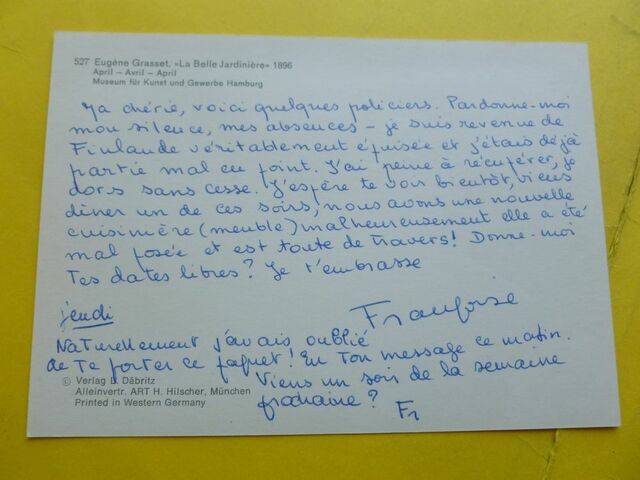 527 Eugène Grasset, »La Belle Jardinière« 1896
April – Avril – April
Museum für Kunst und Gewerbe Hamburg
Ma chérie, voici quelques policiers. Pardonne-moi
mon silence, mes absences – je suis revenue de
Finlande véritablement épuisée et j'étais déjà
partie mal en point. J'ai peine à récupérer, je
dors sans cesse. J'espère te voir bientôt, viens
dîner un de ces soirs, nous avons une nouvelle
cuisinière (meuble) malheureusement elle a été
mal posée et est toute de travers! Donne-moi
tes dates libres? Je t'embrasse
Françoise
jeudi
Naturellement j'avais oublié
de te porter ce paquet! Eu ton message ce matin.
Viens un soir de la semaine
prochaine?
Fr
© Verlag D. Däbritz
Alleinvertr. ART H. Hilscher, München
Printed in Western Germany